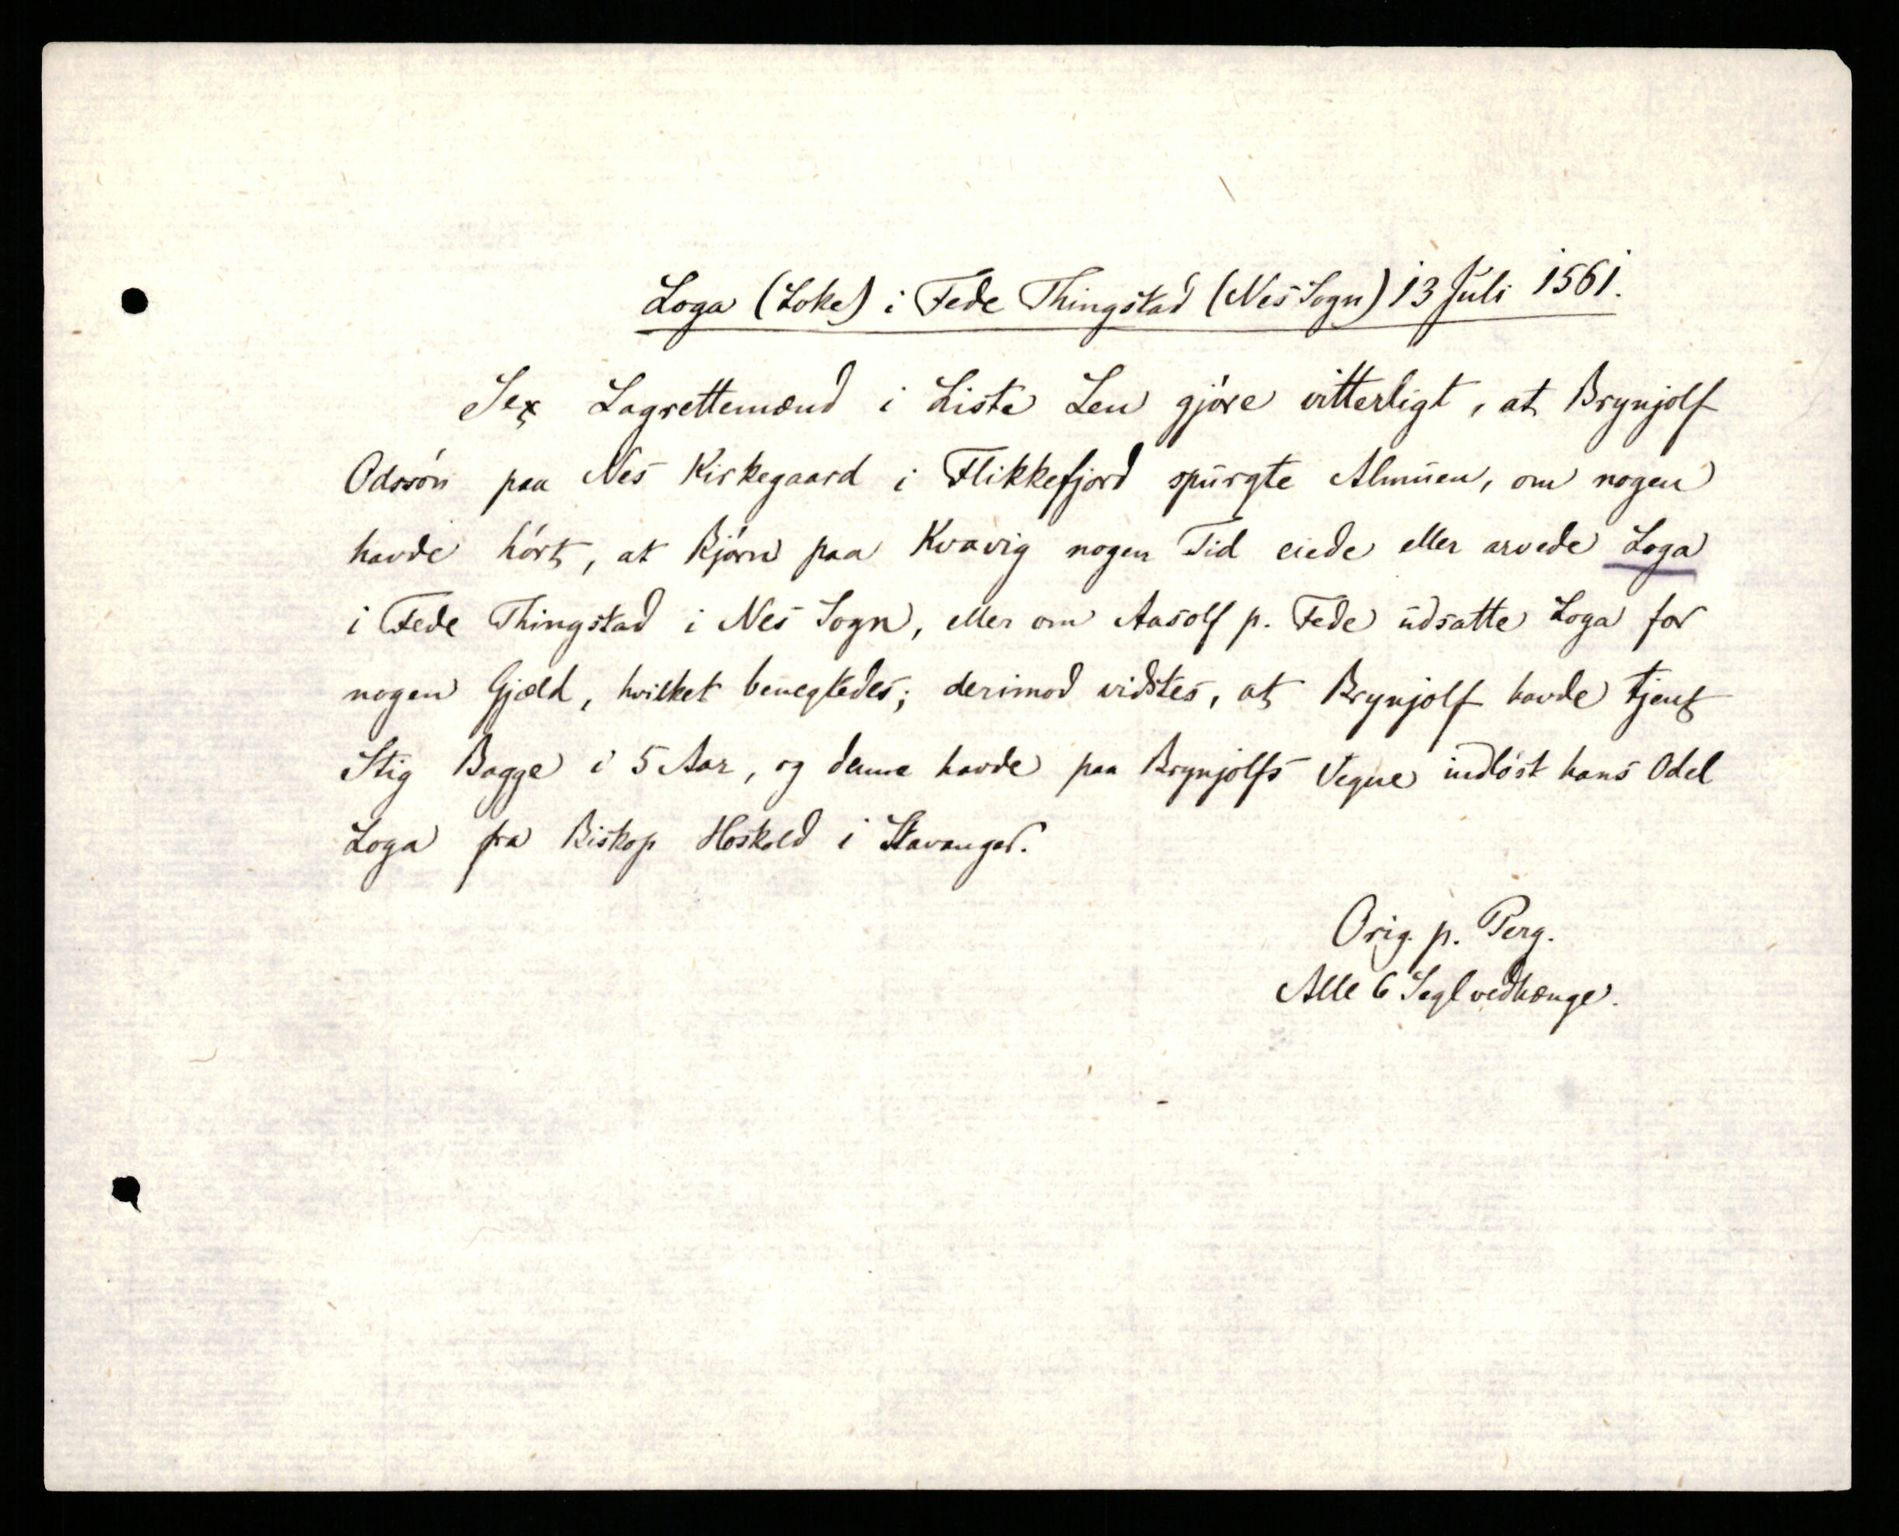 Loga (Loke) i Fede Thingstad (Nes Sogn) 13 Juli 1561.
Sex Lagrettemænd i Liste Len gjöre vitterligt, at Brynjolf
Odssön paa Nes Kirkegaard i Flikkefjord spurgte Almuen, om nogen
havde hört, at Björn paa Kvavig nogen Tid eiede eller arvede Loga
i Fede Thingstad i Nes Sogn, eller om Aasolf p. Fede udsatte Loga for
nogen Gjæld, hvilket benegtedes; derimod vidstes, at Brynjolf havde tjent
Stig Bagge i 5 Aar, og denne havde paa Brynjolfs Vegne indlöst hans Odel
Loga fra Biskop Hoskold i Stavanger.
Orig. p. Perg.
Alle 6 Segl vedhænge.